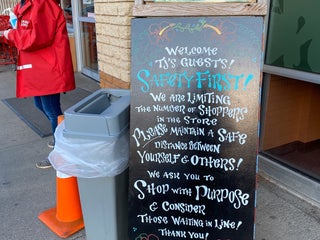 Welcome
TJ's Guests!
Safety First!
We are Limiting
the Number of Shoppers
in the Store
Please Maintain a Safe
distance Between
Yourself & Others!
We ask you to
Shop with Purpose
& Consider
Those Waiting in Line!
Thank you!